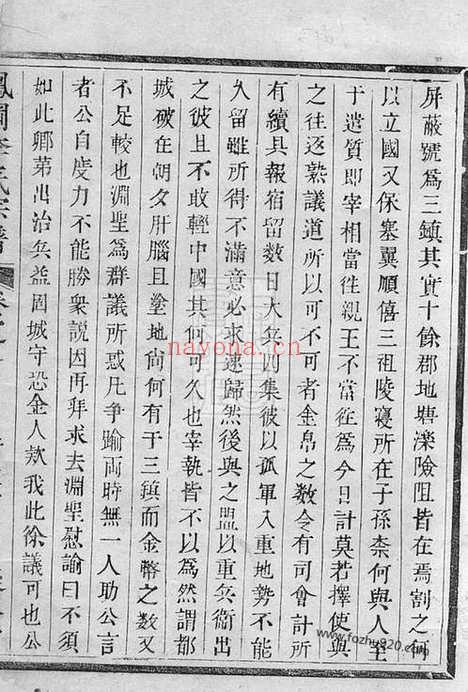 屏蔽號爲三鎮其實十餘郡地塘濼險阻皆在焉割之何
以立國又保塞翼順僖三祖陵寢所在子孫柰何與人至
于遣質即宰相當往親王不當徃爲今日計莫若擇使與
之往逐熟議道所以可不可者金帛之數令有司會計所
有續具報宿留數日大兵四集彼以孤軍入重地勢不能
久留雖所得不滿意必求速歸然後與之盟以重兵衛出
之彼且不敢輕中國其何可久也宰執皆不以為然謂都
城破在朝夕肝腦且塗地尙何有于三鎮而金幣之數又
不足較也淵聖爲群議所惑凡争踰兩時無一人助公言
者公自度力不能勝衆説因再拜求去淵聖慰諭曰不須
如此卿第出治兵益固城守恐金人欺我此徐議可也公
宗譜
nayona.cn
www.fozhu920.com